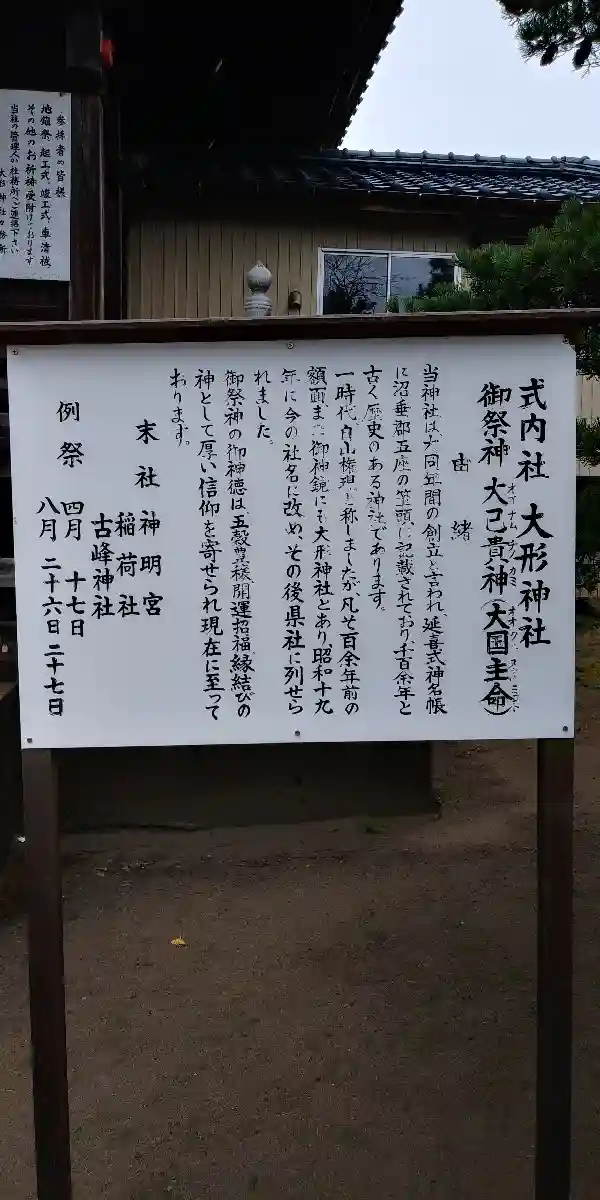 式内社 大形神社
御祭神 大己貴神(大国主命)
由緒
当神社は大同年間の創立と言われ、延喜式神名帳
に沼垂郡五座の筆頭に記載されており、千百余年と
古く歴史のある神社であります。
一時代、白山権現と称しましたが、凡そ百余年前の
額面、また御神鏡にも大形神社とあり昭和十九
年に今の社名に改め、その後県社に列せら
れました。
御祭神の御神徳は、五穀豊穣、開運招福、縁結びの
神として厚い信仰を寄せられ現在に至って
おります。
末社 神明宮
稲荷社
古峰神社
例祭 四月 十七日
八月 二十六日二十七日
参拝者の皆様
地鎮祭、起工式、竣工式、車清祓
その他のお祈祷受附けております
当社の管理人か社務所へご連絡下さい
大形神社々務所